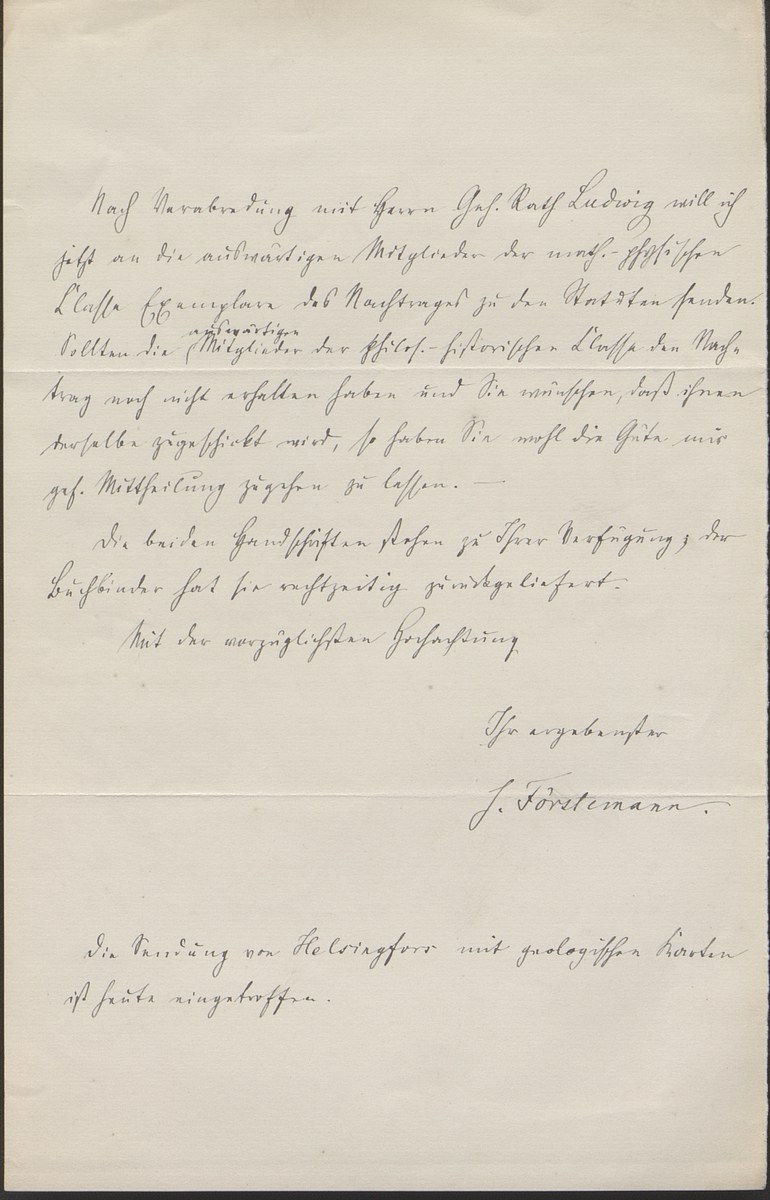 Nach Verabredung mit Herrn Geh. Rath Ludwig will ich
jetzt an die auswärtigen Mitglieder der math.-physischen
Classe Exemplare des Nachtrages zu den Statuten senden.
auswärtigen
Sollten die Mitglieder der philos.-historischen Classe den Nach-
trag noch nicht erhalten haben und Sie wünschen, daß ihnen
derselbe zugeschickt wird, so haben Sie wohl die Güte mir
gef. Mittheilung zugehen zu lassen. —
Die beiden Handschriften stehen zu Ihrer Verfügung; der
Buchbinder hat sie rechtzeitig zurückgeliefert.
Mit der vorzüglichsten Hochachtung
Ihr ergebenster
J. Förstemann.
Die Sendung von Helsingfors mit geologischen Karten
ist heute eingetroffen.